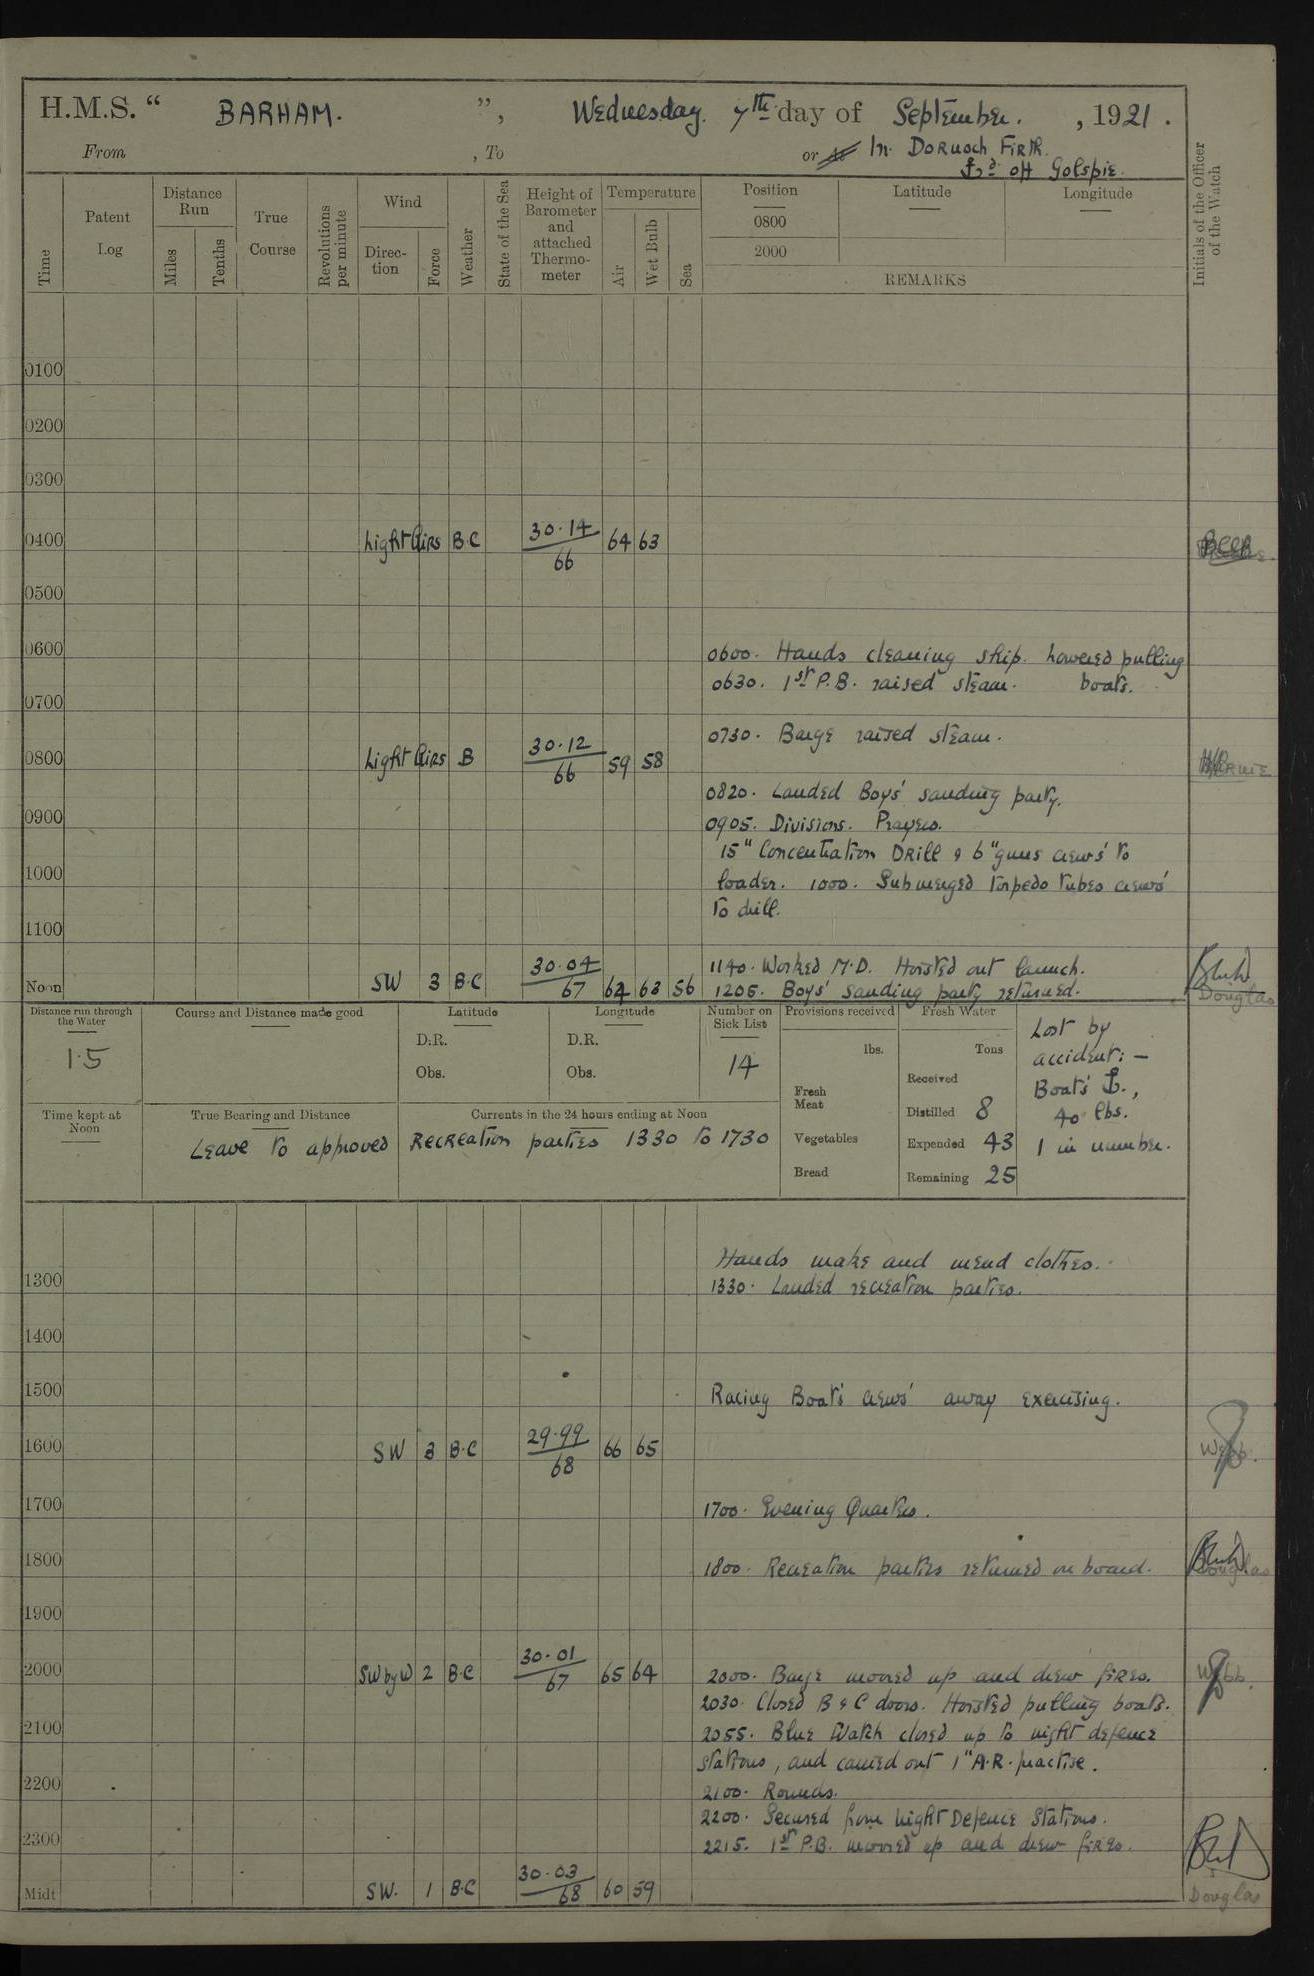 H.M.S. “ BARHAM. ”, Wednesday. 7th day of September. , 1921.
From , To or At In Dornoch Firth.
⚓d off Golspie.
Time Patent Log Distance Run Miles Tenths True Course Revolutions per minute Wind Direc- tion Force Weather State of the Sea Height of Barometer and attached Thermo- meter Temperature Air Wet Bulb Sea Position Latitude Longitude Initials of the Officer of the Watch
0800
2000
REMARKS
0100
0200
0300
0400 Light Airs B.C 30.14 64 63
66
0500
0600 0600. Hands cleaning ship. Lowered pulling
0630. 1st P.B. raised steam. boats.
0700
0730. Barge raised steam.
0800 Light Airs B 30.12 59 58
66
0820. Landed Boys' sanding party.
0900 0905. Divisions. Prayers.
15" Concentration Drill & 6" guns crews' to
1000 loader. 1000. Submerged torpedo tubes crews'
to drill.
1100
1140. Worked M.D. Hoisted out launch.
Noon SW 3 B.C 30.04 64 63 56 1205. Boys' sanding party returned. Douglas
67
Distance run through the Water Course and Distance made good Latitude Longitude Number on Sick List Provisions received Fresh Water Lost by
1.5 D.R. D.R. 14 lbs. Tons accident: —
Obs. Obs. Fresh Meat Received Boat's ⚓.,
Time kept at Noon True Bearing and Distance Currents in the 24 hours ending at Noon Distilled 8 40 lbs.
Leave to approved Recreation parties 1330 to 1730 Vegetables Expended 43 1 in number.
Bread Remaining 25
Hands make and mend clothes.
1300 1330. Landed recreation parties.
1400
1500 Racing Boat's crews' away exercising.
1600 SW 3 B.C 29.99 66 65 Webb.
68
1700 1700. Evening Quarters.
1800 1800. Recreation parties returned on board. Douglas
1900
2000 SW by W 2 B.C 30.01 65 64 2000. Barge moored up and drew fires. Webb.
67
2030. Closed B & C doors. Hoisted pulling boats.
2100 2055. Blue Watch closed up to night defence
stations, and carried out 1" A.R. practise.
2200 2100. Rounds.
2200. Secured from Night Defence Stations.
2300 2215. 1st P.B. moored up and drew fires.
Midt SW. 1 B.C 30.03 60 59 Douglas
68